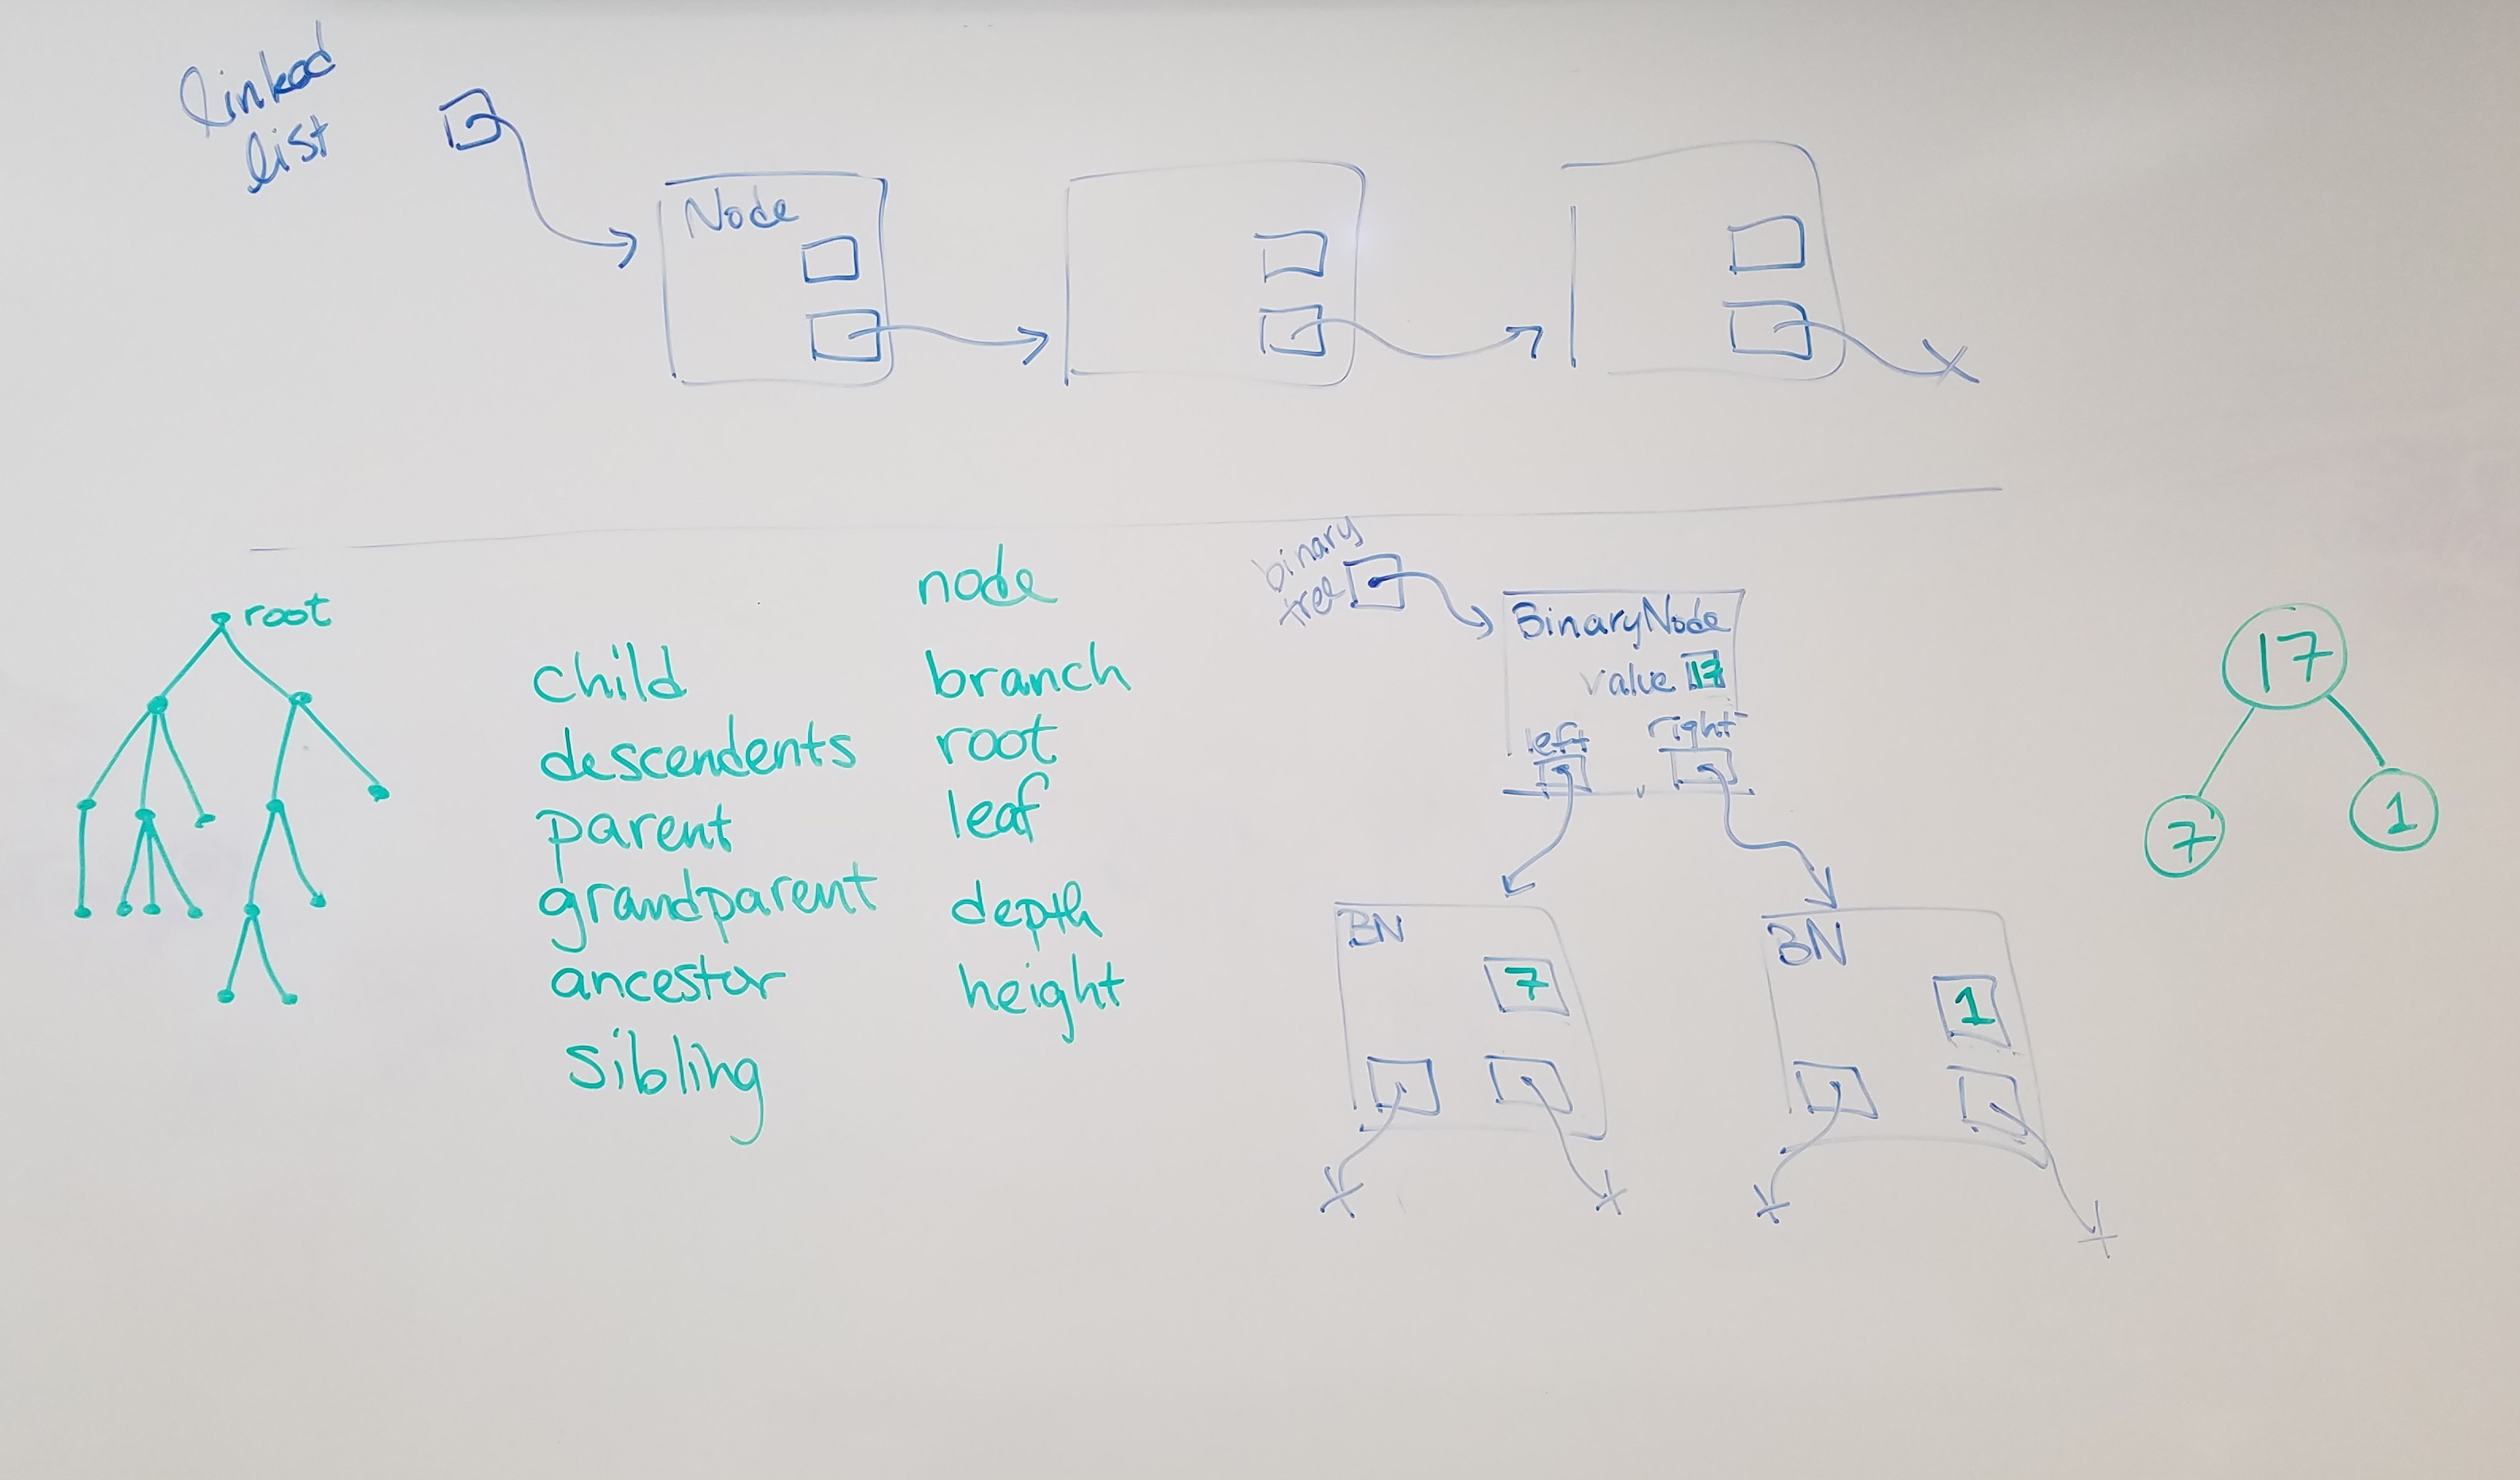 Linked
list
Node
root
child
descendents
parent
grandparent
ancestor
sibling
node
branch
root
leaf
depth
height
binary
tree
BinaryNode
value 17
left right
BN
7
BN
1
17
7 1